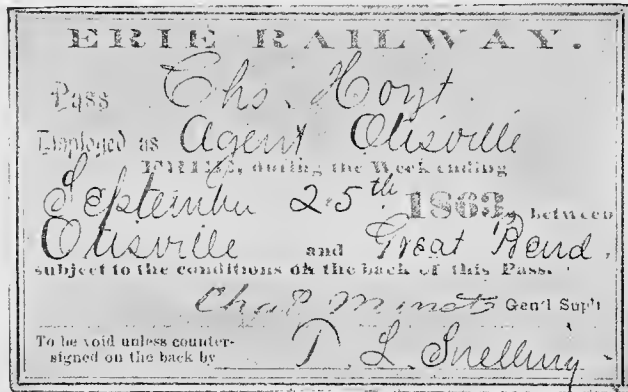 ERIE RAILWAY.
Pass Chs. Hoyt
Employed as Agent Otisville
FREE, during the Week ending
September 25th 1863, between
Otisville and Great Bend.
subject to the conditions on the back of this Pass.
Chas Minot Gen'l Sup't
To be void unless counter-
signed on the back by T. L. Snelling